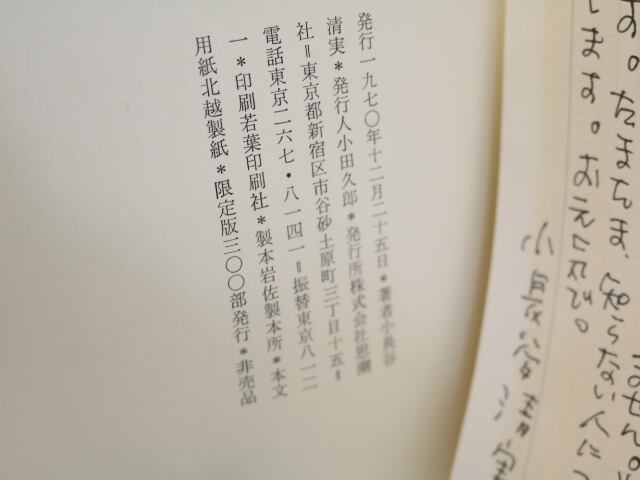 す。たまたま、知らない人に
します。おえたび。
小長谷清実
発行一九七〇年十二月二十五日*著者小長谷
清実*発行人小田久郎*発行所株式会社思潮
社=東京都新宿区市谷砂土原町三丁目十五=
電話東京二六七・八一四一=振替東京八一二
一*印刷若葉印刷社*製本岩佐製本所*本文
用紙北越製紙*限定版三〇〇部発行*非売品